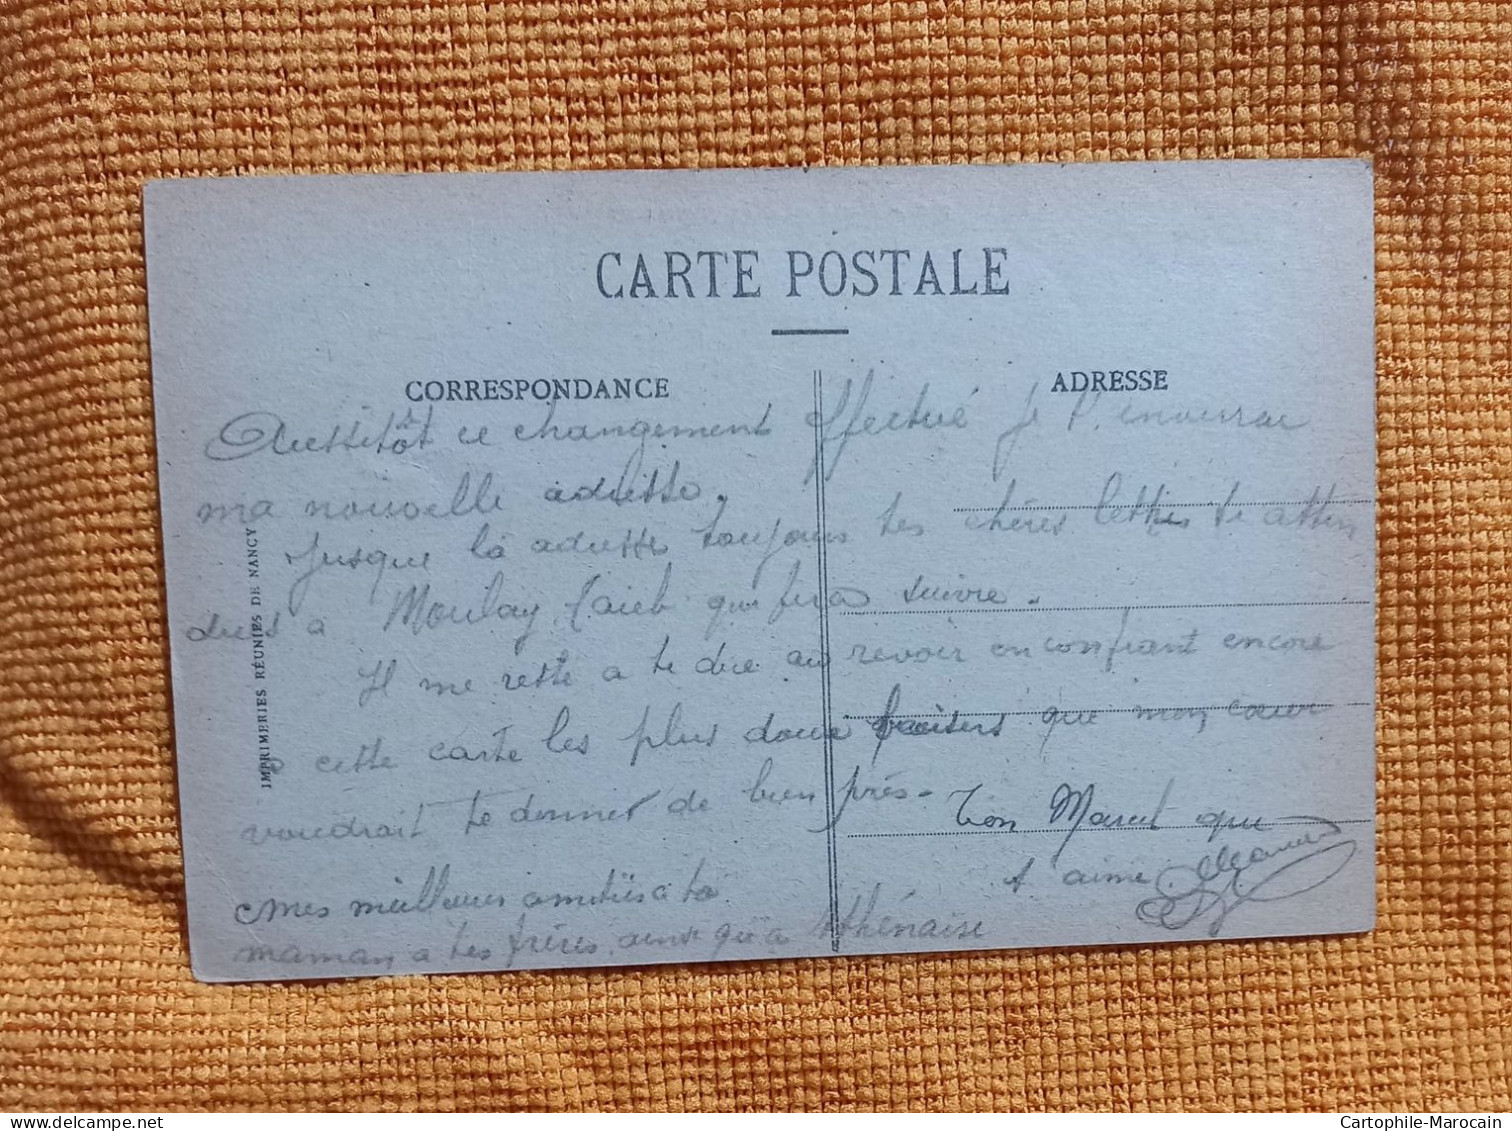 CARTE POSTALE
CORRESPONDANCE
ADRESSE
Aussitôt ce changement effectué je t'enverrai
ma nouvelle adresse.
Jusque là adresse toujours tes chères lettres
à Moulay Taieb qui fera suivre.
Il me reste a te dire au revoir en confiant encore
a cette carte les plus doux baisers que mon cœur
voudrait te donner de bien près -
Ton Marcel qui
t aime.
Mes meilleures amitiés a ta
maman a tes frères, ainsi qu'a Athénaise
IMPRIMERIES RÉUNIES DE NANCY
Cartophile-Marocain